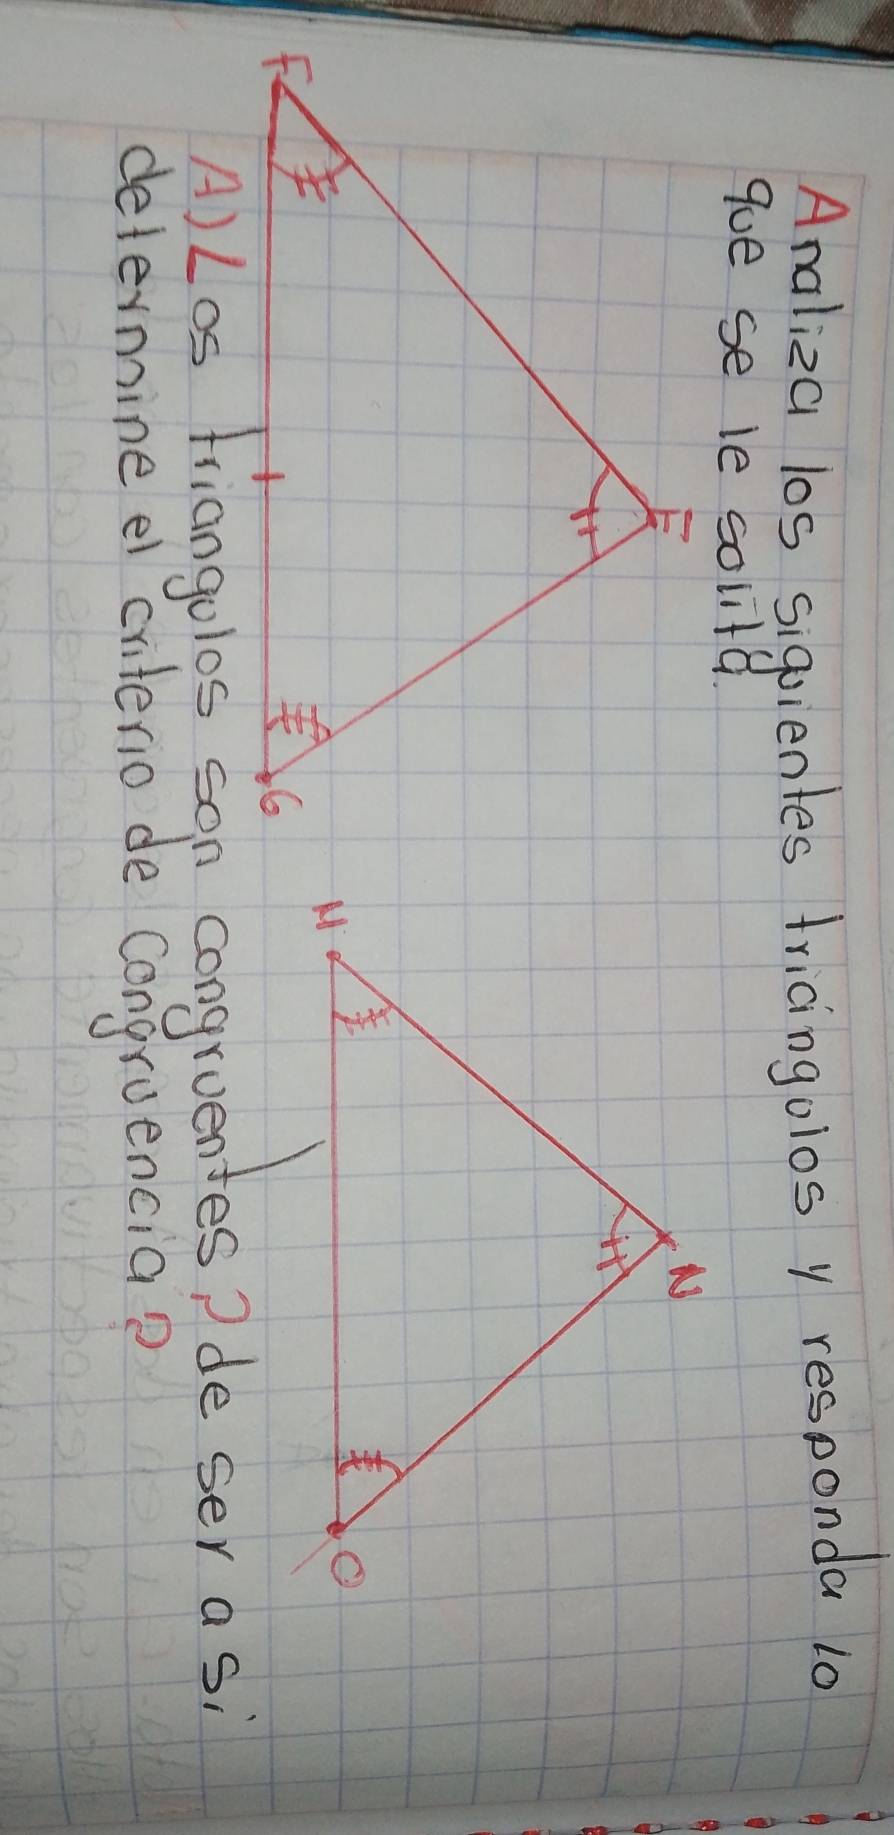 Analiza los siguientes triángulos y responda lo
que se le solita.
E
F
G
N
O
A) Los triangulos son congruentes? de ser a si
determine el criterio de Congruencia?